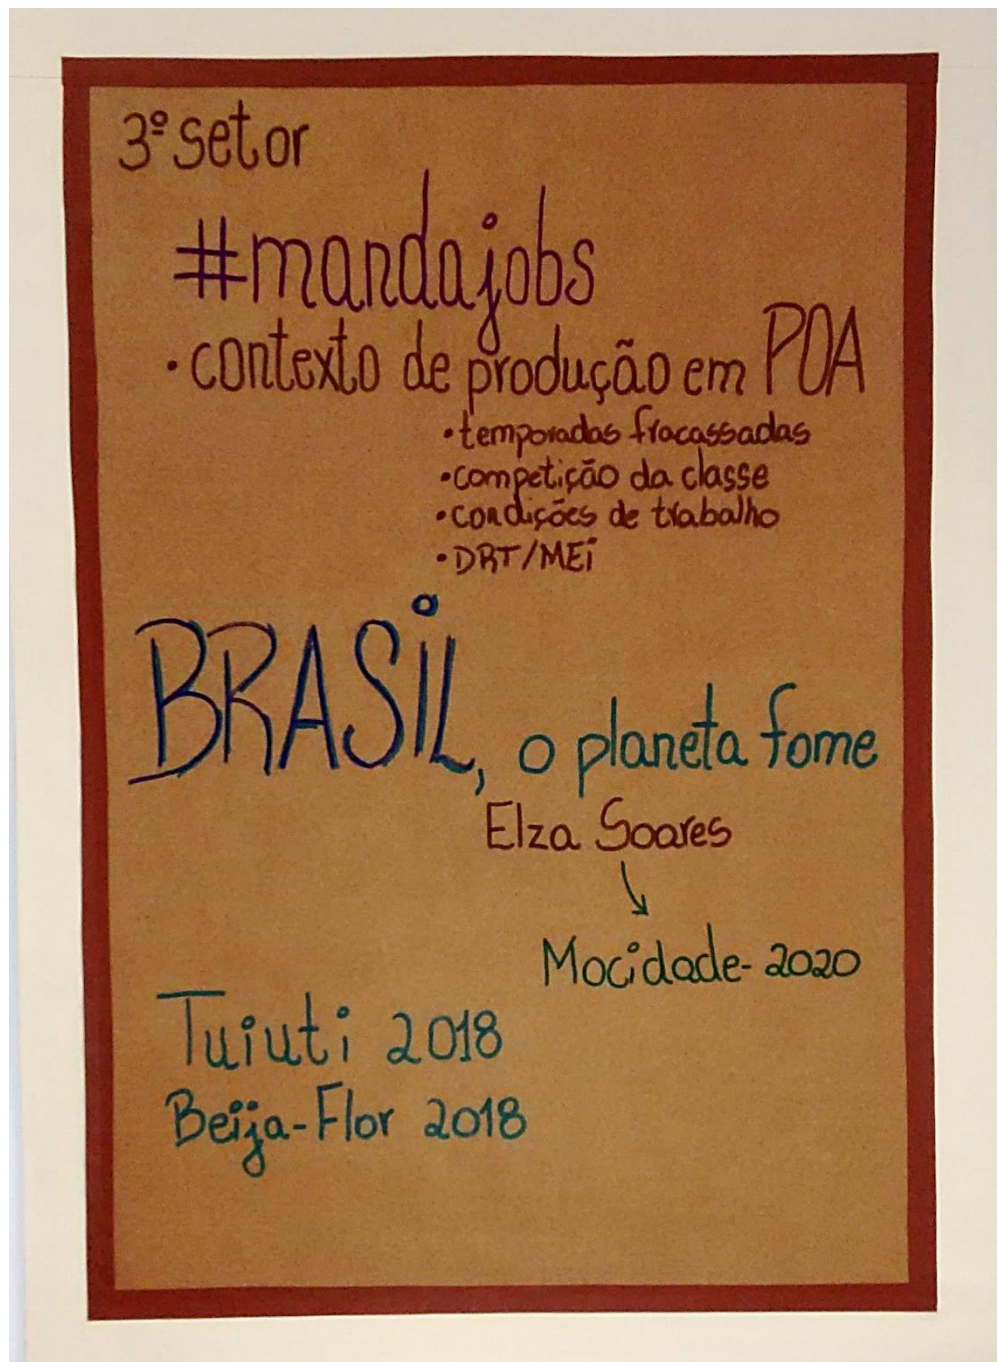 3º setor
#mandajobs
• contexto de produção em POA
• temporadas fracassadas
• competição da classe
• condições de trabalho
• DRT/MEi
BRASiL, o planeta fome
Elza Soares
↓
Mocidade - 2020
Tuiuti 2018
Beija-Flor 2018